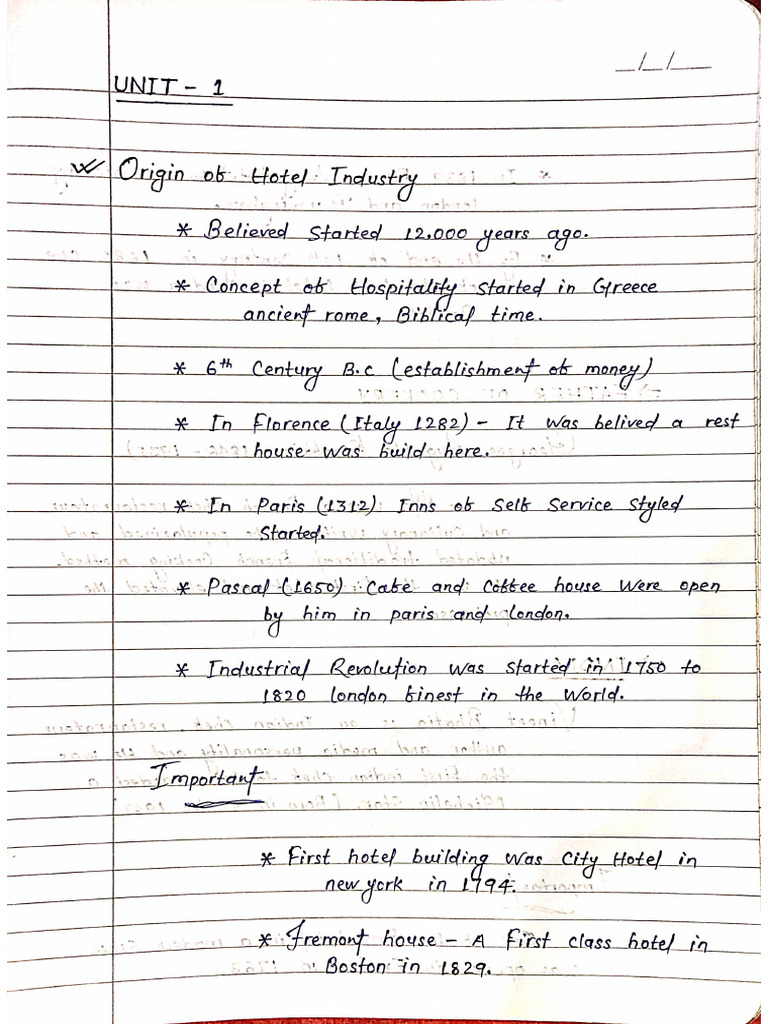 _/_/__
UNIT - 1
Origin of Hotel Industry
* Believed Started 12,000 years ago.
* Concept of Hospitality started in Greece
ancient rome, Biblical time.
* 6th Century B.c (establishment of money)
* In Florence (Italy 1282) - It was belived a rest
house was build here.
* In Paris (1312) Inns of Self Service Styled
Started.
* Pascal (1650) Cafe and Coffee house Were open
by him in paris and london.
* Industrial Revolution was started in 1750 to
1820 london finest in the World.
Important
* First hotel building was City Hotel in
new york in 1794.
* Fremont house - A First class hotel in
Boston in 1829.